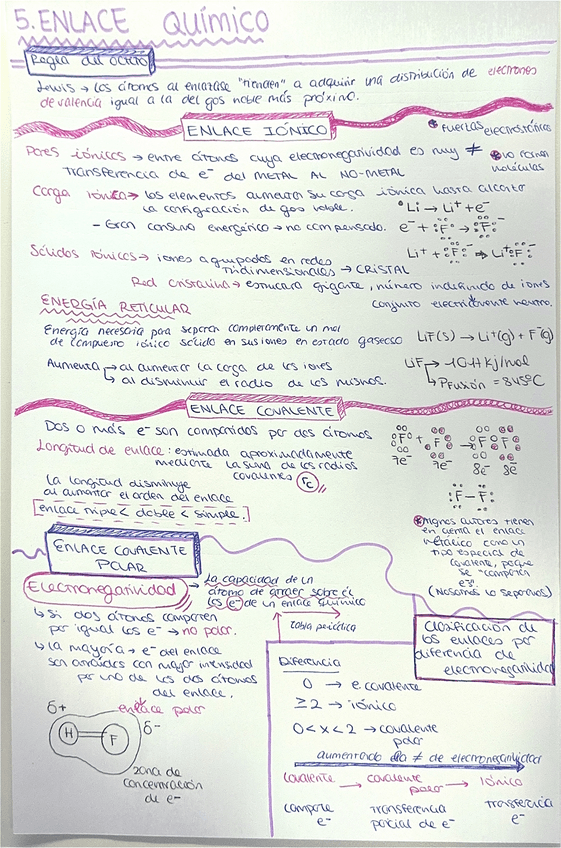 5. ENLACE QUÍMICO
Regla del octeto
Lewis → los átomos al enlazarse "tienden" a adquirir una distribución de electrones
de valencia igual a la del gas noble más próximo.
ENLACE IÓNICO
* Fuerzas electrostáticas
* No forman moléculas
Pares iónicos → entre átomos cuya electronegatividad es muy ≠
Transferencia de e⁻ del METAL AL NO-METAL
Carga iónica → los elementos aumentan su carga iónica hasta alcanzar
la configuración de gas noble.
- Gran consumo energético → no compensado.
•Li → Li⁺ + e⁻
e⁻ + F → F⁻
Li⁺ + F⁻ → Li⁺F⁻
Sólidos iónicos → iones agrupados en redes
tridimensionales → CRISTAL
Red cristalina → estructura gigante, número indefinido de iones
conjunto eléctricamente neutro.
ENERGÍA RETICULAR
Energía necesaria para separar completamente un mol
de compuesto iónico sólido en sus iones en estado gaseoso
LiF(s) → Li⁺(g) + F⁻(g)
Aumenta → al aumentar la carga de los iones
↳ al disminuir el radio de los mismos.
LiF → 1017 kJ/mol
↳ Pfusión = 845°C
ENLACE COVALENTE
Dos o más e⁻ son compartidos por dos átomos
Longitud de enlace: estimada aproximadamente
mediante la suma de los radios
covalentes rc
F + F → F F
7e⁻ 7e⁻ 8e⁻ 8e⁻
:F-F:
La longitud disminuye
al aumentar el orden del enlace
enlace triple < doble < simple.
* Algunos autores tienen
en cuenta el enlace
metálico como un
tipo especial de
covalente, porque
se "comparten
e⁻s".
(Nosotros lo separamos)
ENLACE COVALENTE
POLAR
Electronegatividad
→ La capacidad de un
átomo de atraer sobre él
los (e⁻) de un enlace químico
tabla periódica
↳ Si dos átomos comparten
por igual los e⁻ → no polar.
↳ La mayoría → e⁻ del enlace
son atraídos con mayor intensidad
por uno de los dos átomos
del enlace.
enlace polar
δ+ δ-
H F
zona de
concentración
de e⁻
Clasificación de
los enlaces por
diferencia de
electronegatividad
Diferencia
0 → e. covalente
≥2 → iónico
0 < x < 2 → covalente
polar
aumentando la ≠ de electronegatividad
covalente → covalente polar → iónico
comparte e⁻
Transferencia parcial de e⁻
Transferencia e⁻